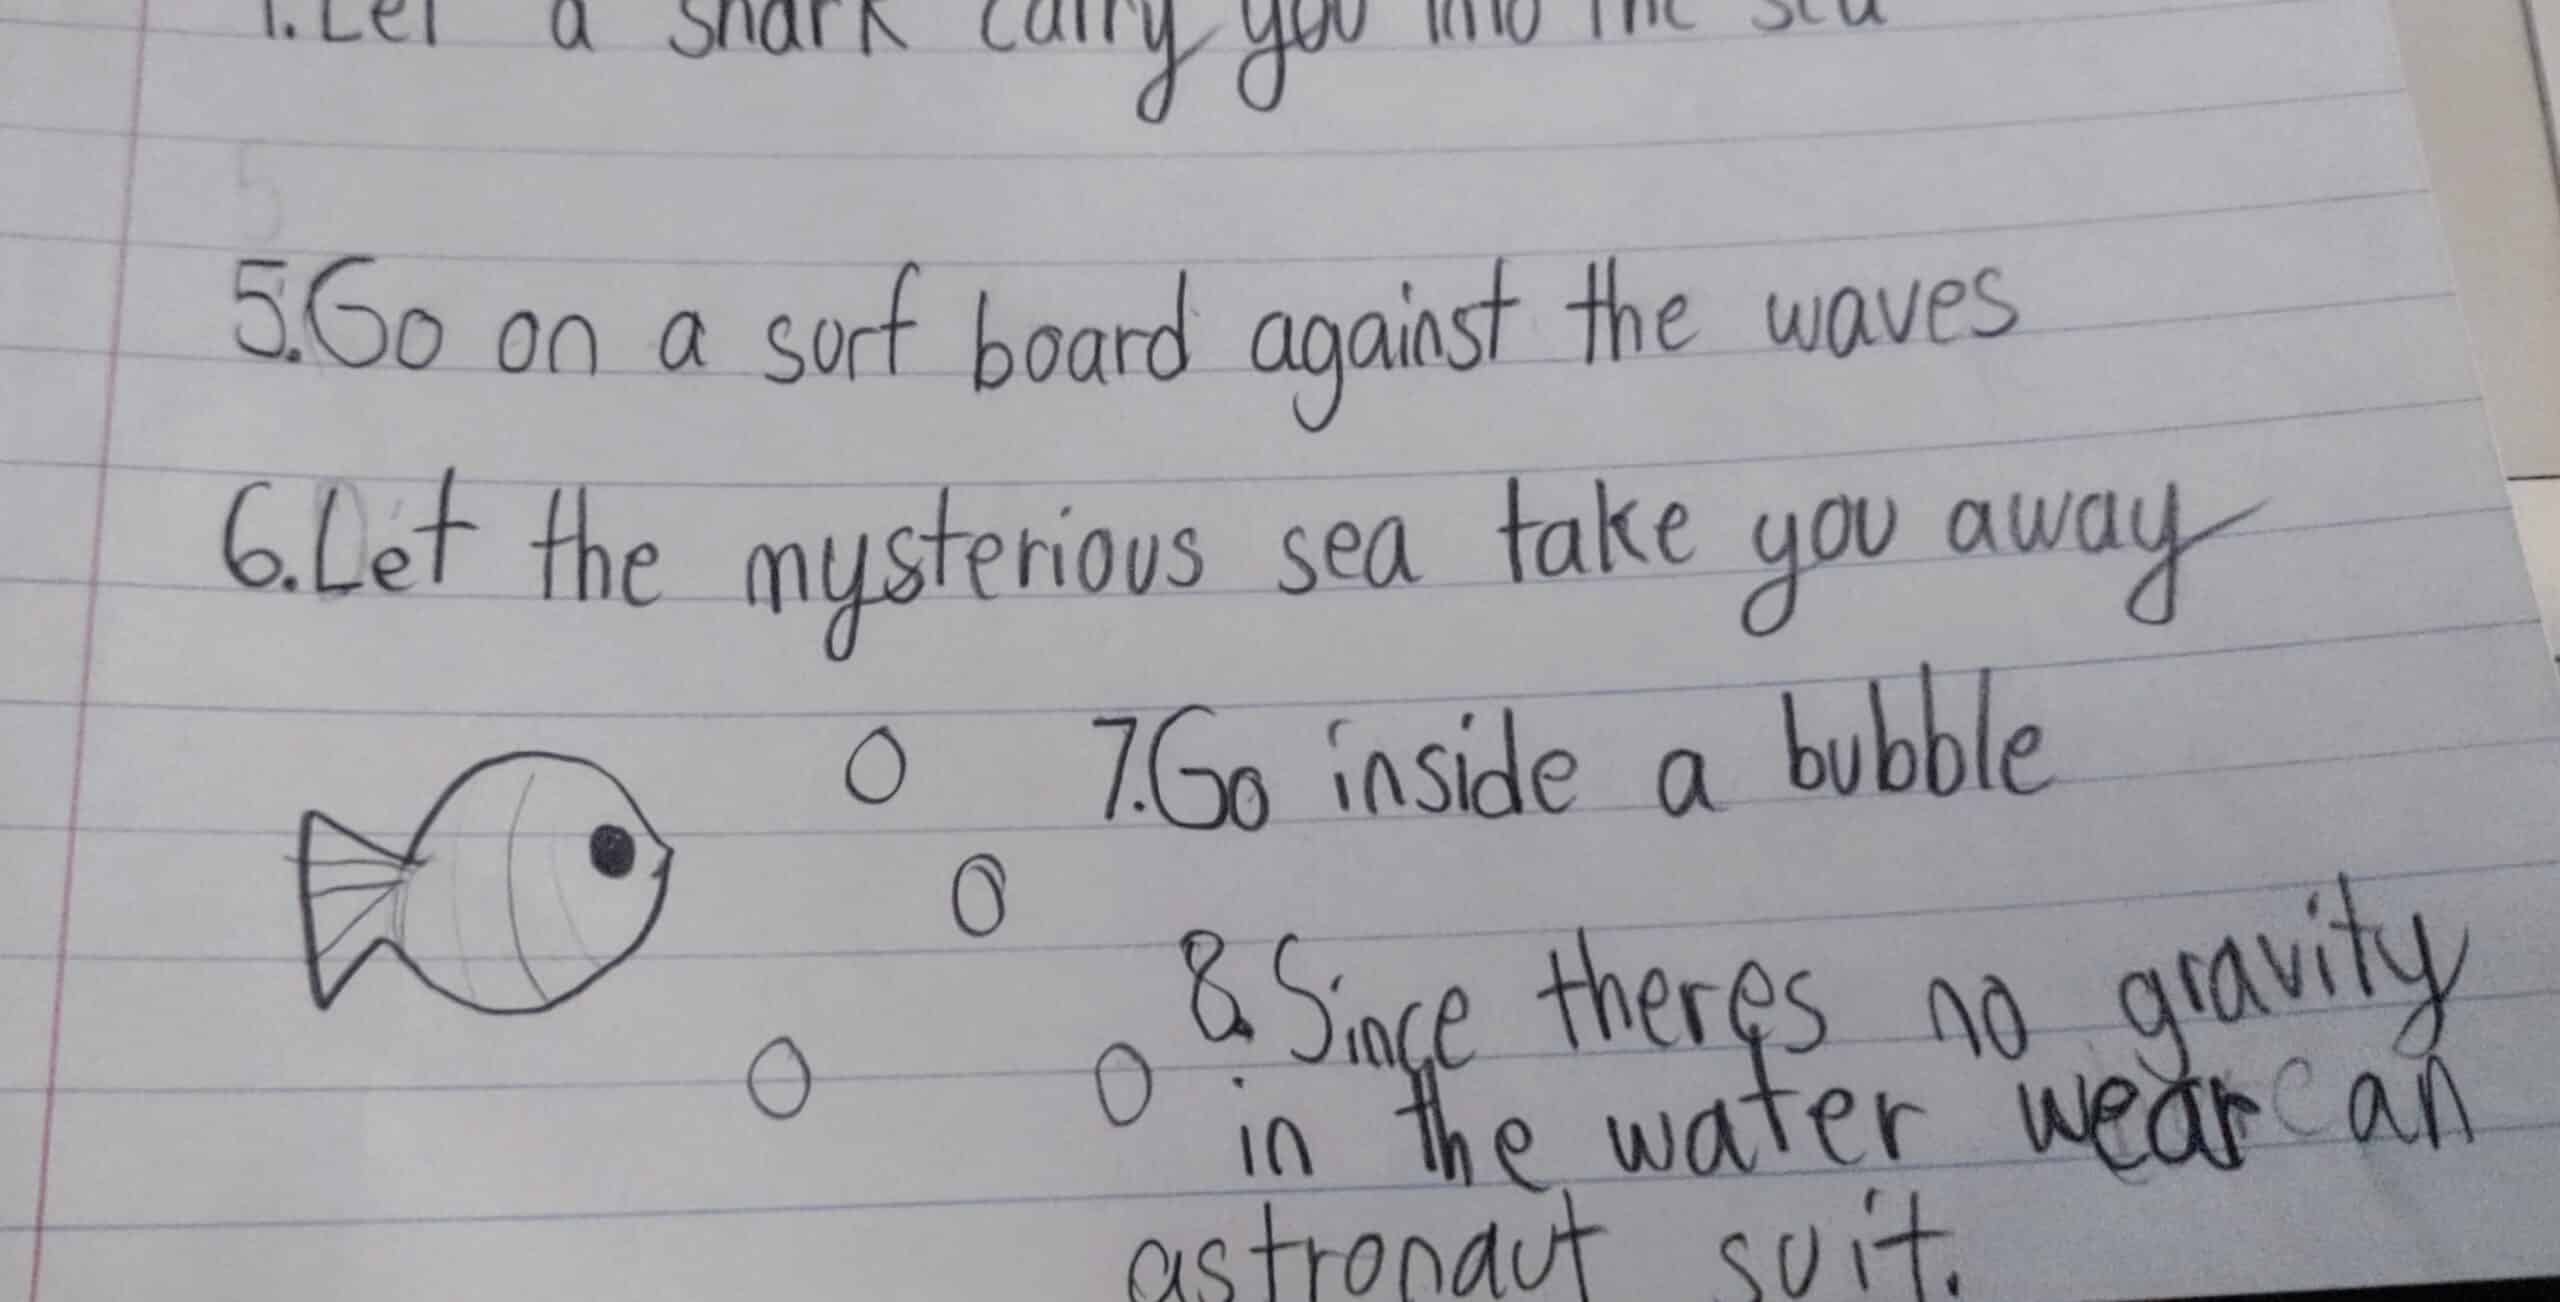 1. Let a shark carry you into the sea
5. Go on a surf board against the waves
6. Let the mysterious sea take you away
7. Go inside a bubble
8. Since theres no gravity
in the water wear an
astronaut suit.